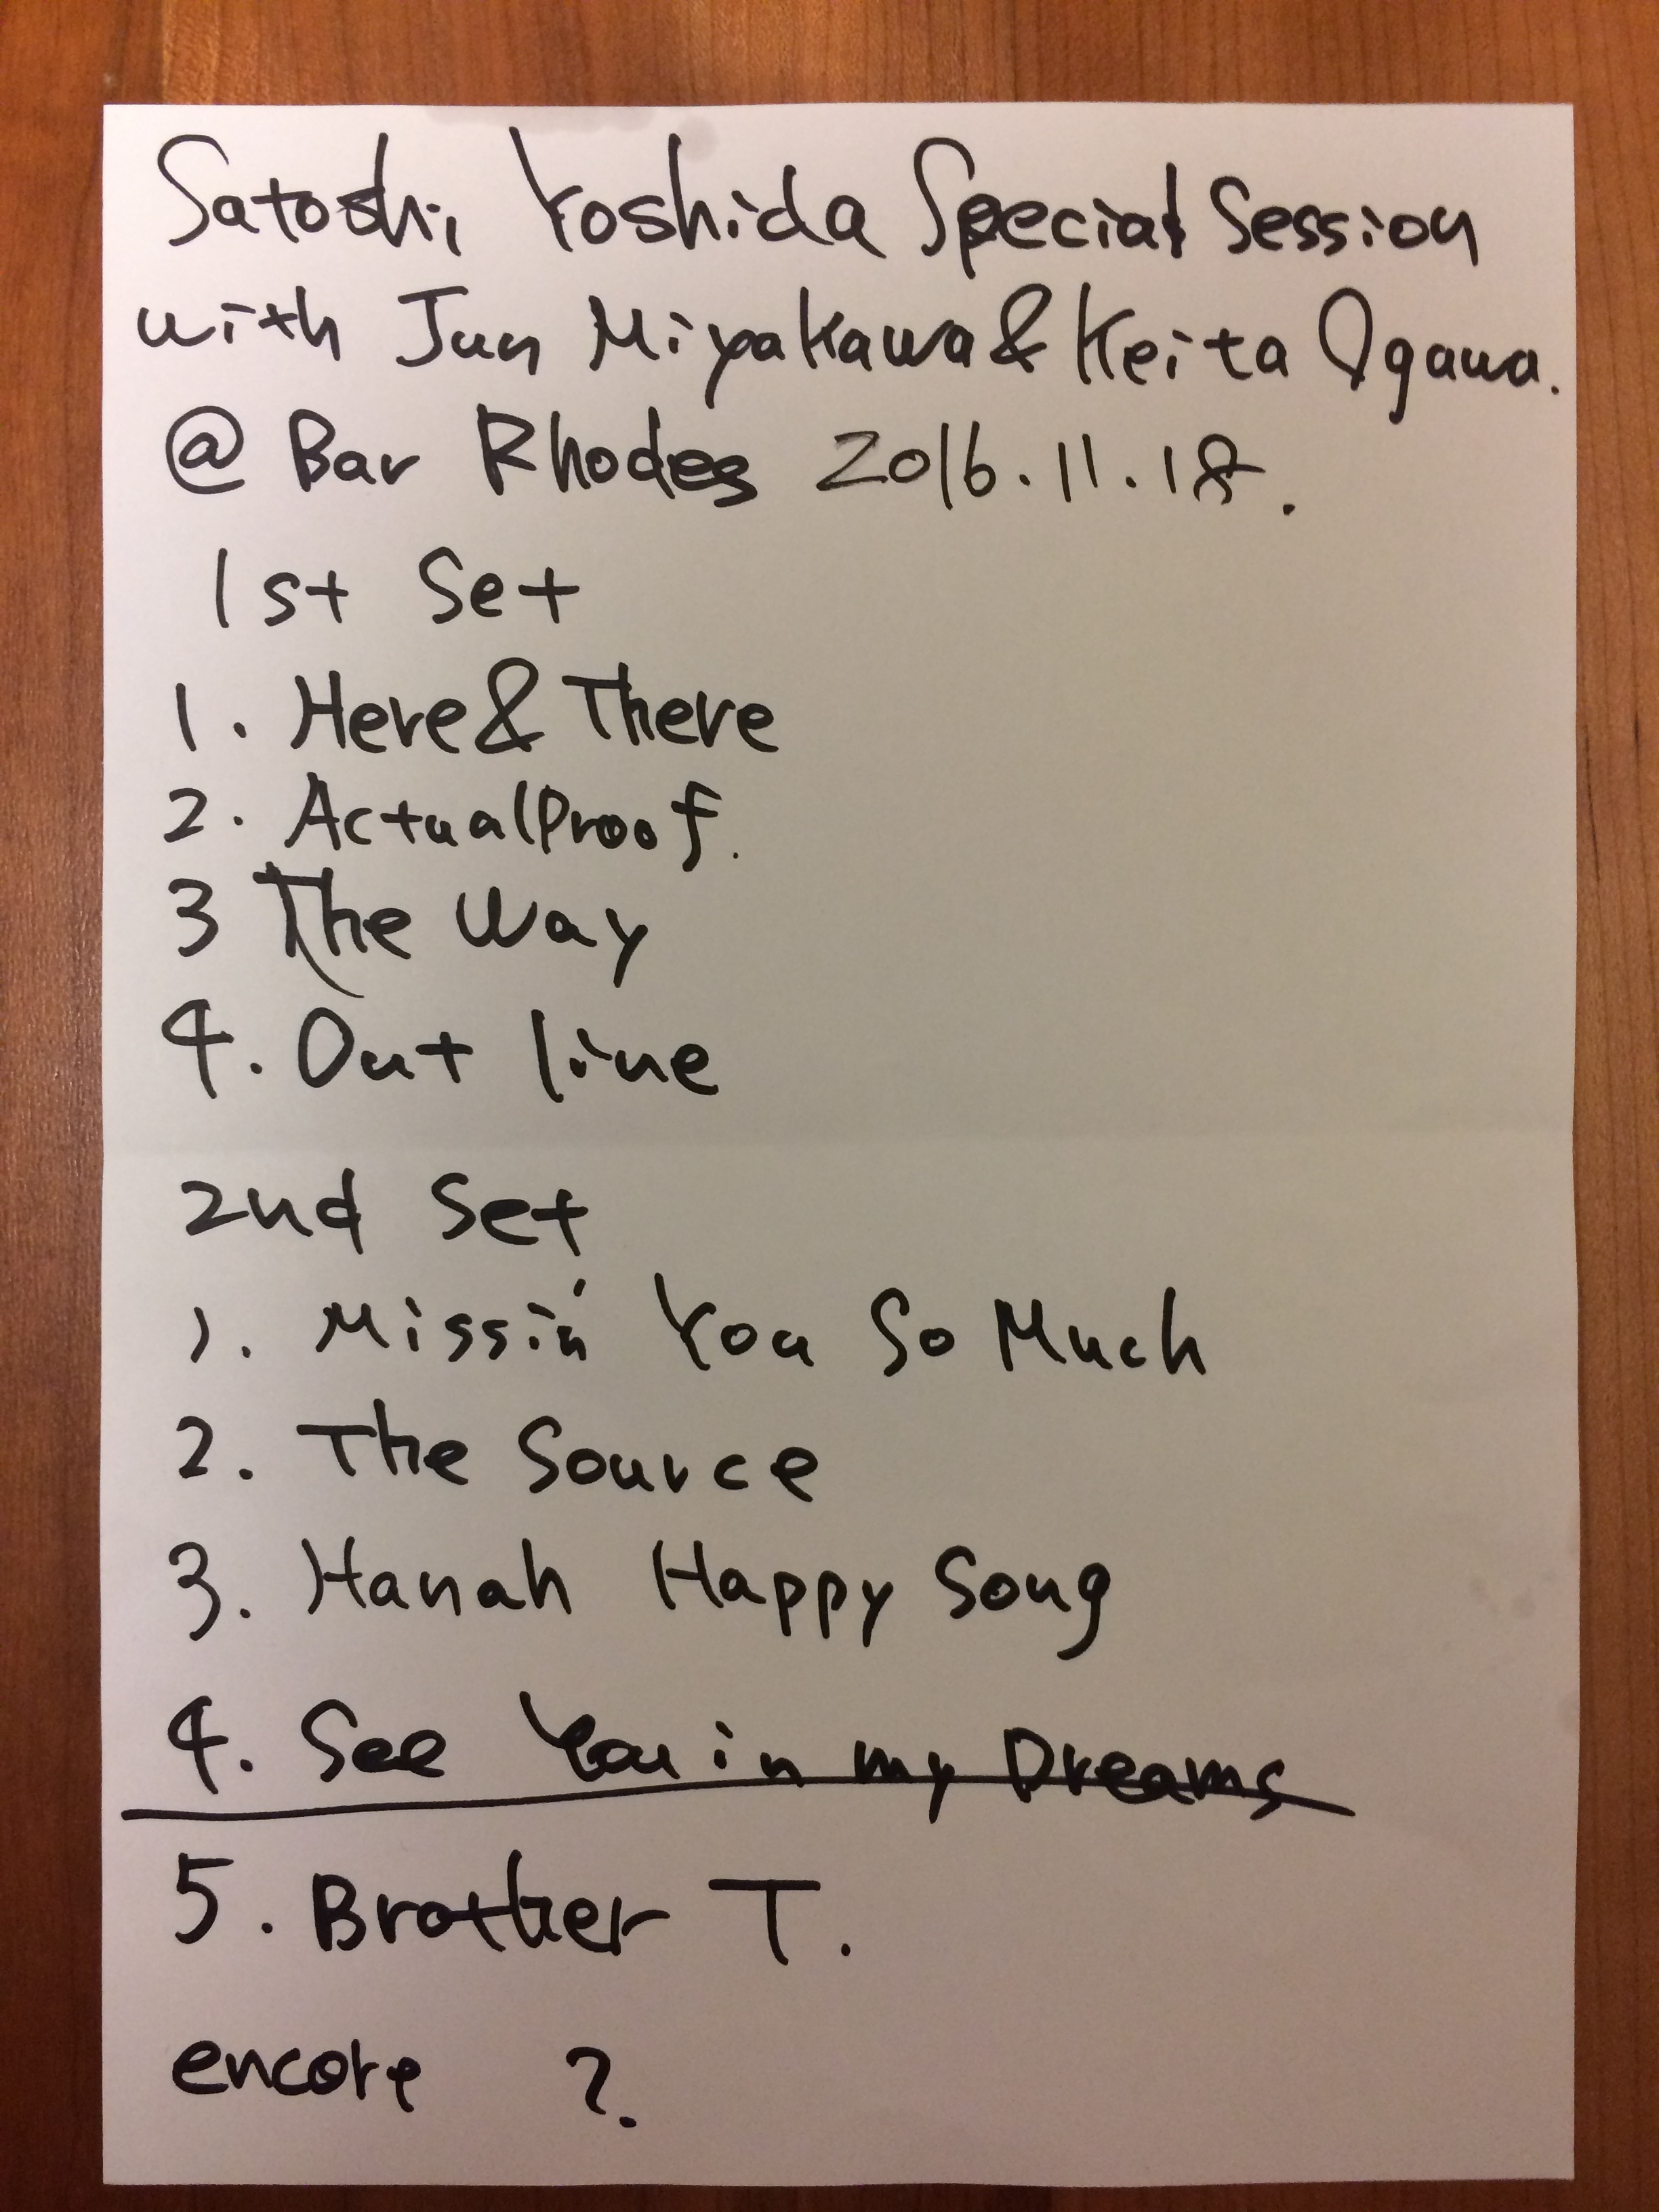 Satoshi Yoshida Special Session
with Jun Miyakawa & Keita Ogawa.
@ Bar Rhodes 2016.11.18.
1st Set
1. Here & There
2. Actual Proof.
3 The Way
4. Out line
2nd Set
1. Missin' You So Much
2. The Source
3. Hanah Happy Song
4. See You in my Dreams
5. Brother T.
encore ?